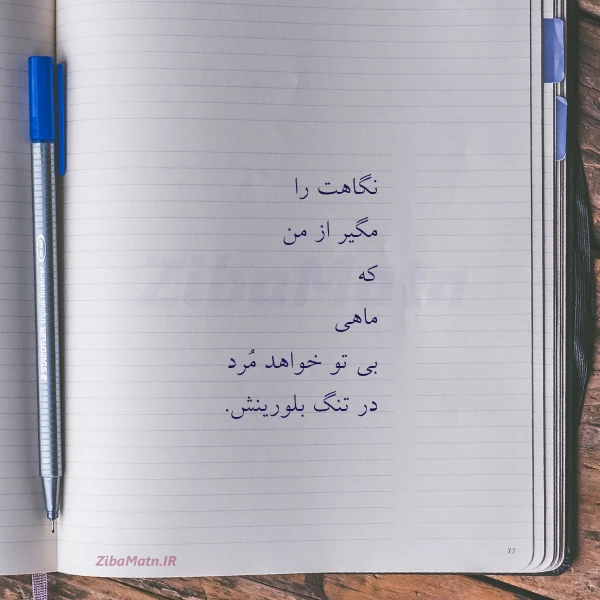 نگاهت را
مگیر از من
که
ماهی
بی تو خواهد مُرد
در تنگ بلورینش.
ZibaMatn
ZibaMatn.IR